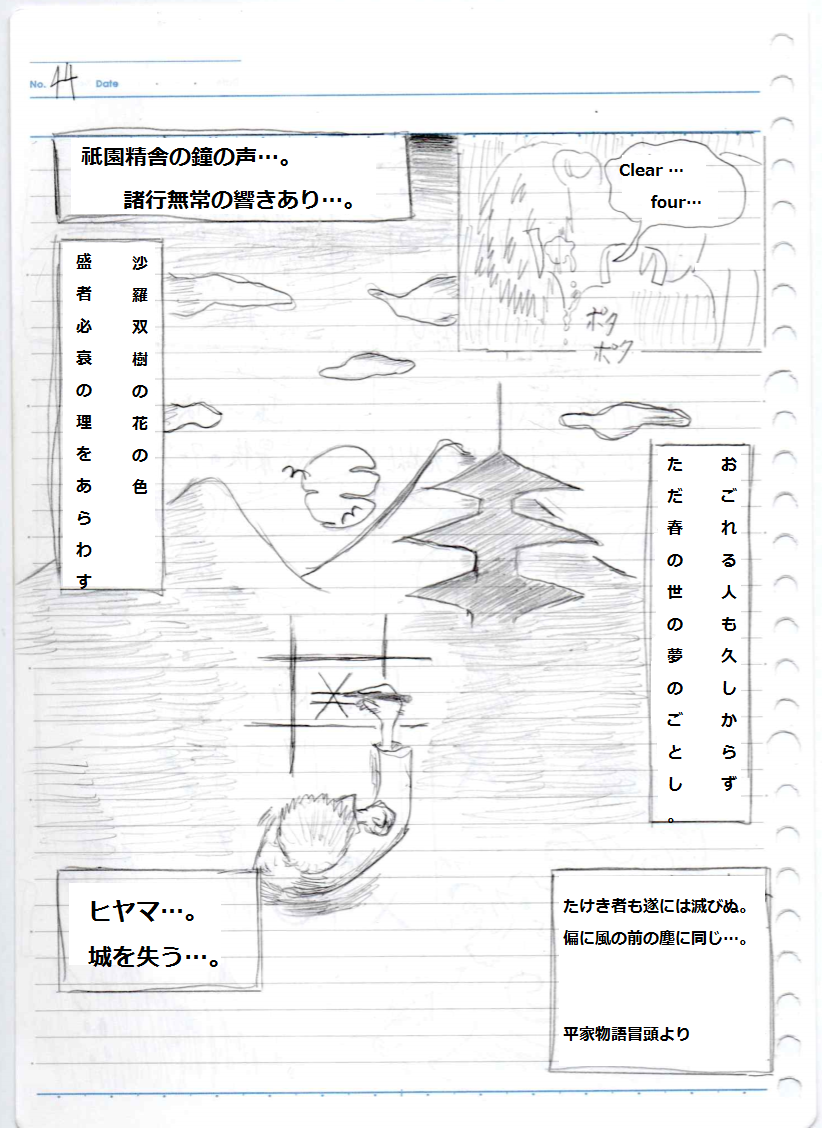 No. 44 Date
Clear …
four…
ポタ
ポタ
祇園精舎の鐘の声…。
諸行無常の響きあり…。
沙羅双樹の花の色
盛者必衰の理をあらわす
おごれる人も久しからず
ただ春の世の夢のごとし。
たけき者も遂には滅びぬ。
偏に風の前の塵に同じ…。
平家物語冒頭より
ヒヤマ…。
城を失う…。